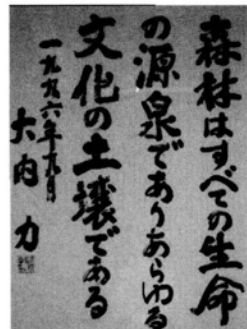 森林はすべての生命
の源泉でありあらゆる
文化の土壌である
一九九六年九月
大内 力